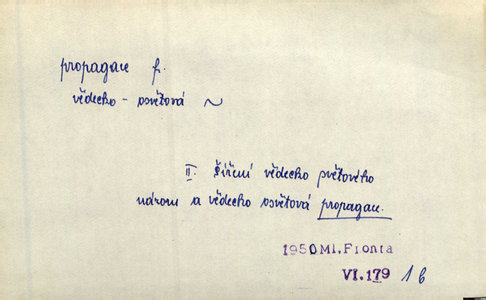 propagace f.
vědecko - osvětová ~
II. Šíření vědecko světového
názoru a vědecko osvětová propagace.
1950 Ml. Fronta
VI. 179 1 b